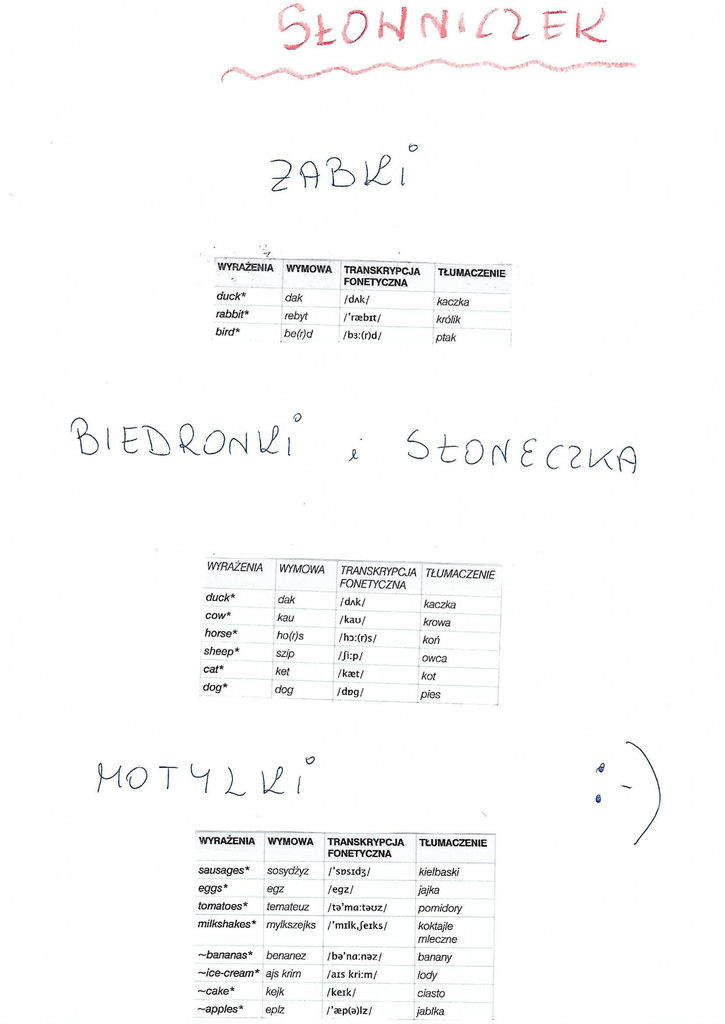 SŁOWNICZEK
ŻABKI
WYRAŻENIA WYMOWA TRANSKRYPCJA FONETYCZNA TŁUMACZENIE
duck* dak /dʌk/ kaczka
rabbit* rebyt /'ræbɪt/ królik
bird* be(r)d /bɜ:(r)d/ ptak
BIEDRONKI i SŁONECZKA
WYRAŻENIA WYMOWA TRANSKRYPCJA FONETYCZNA TŁUMACZENIE
duck* dak /dʌk/ kaczka
cow* kau /kaʊ/ krowa
horse* ho(r)s /hɔ:(r)s/ koń
sheep* szip /ʃi:p/ owca
cat* ket /kæt/ kot
dog* dog /dɒg/ pies
MOTYLKI :-)
WYRAŻENIA WYMOWA TRANSKRYPCJA FONETYCZNA TŁUMACZENIE
sausages* sosydżyz /'sɒsɪdʒ/ kiełbaski
eggs* egz /egz/ jajka
tomatoes* temateuz /tə'mɑ:təʊz/ pomidory
milkshakes* mylkszejks /'mɪlk,ʃeɪks/ koktajle mleczne
~bananas* benanez /bə'nɑ:nəz/ banany
~ice-cream* ajs krim /aɪs kri:m/ lody
~cake* kejk /keɪk/ ciasto
~apples* eplz /'æp(ə)lz/ jabłka